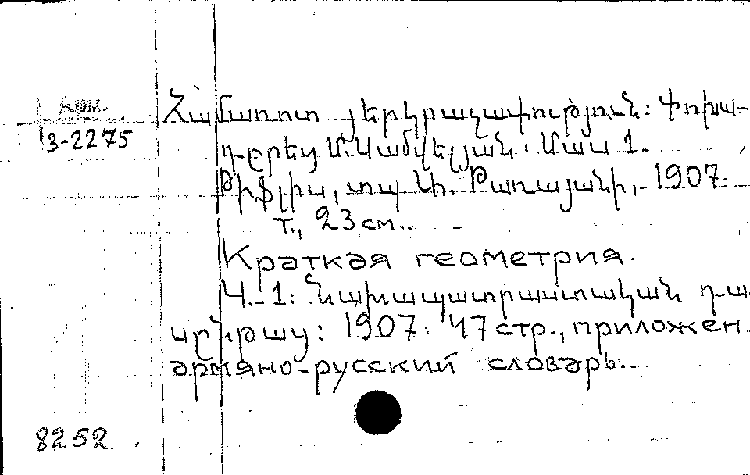 Арм.
3-2275
Համառոտ յերկրաչափութիւն: Փոխա-
դրեց Մ. Սամվելյան. Մաս 1.
Թիֆլիս, տպ. Մ. Մարտիրոսյանի, 1907.
т., 23 см..
Краткая геометрия.
Ч.-1: Նախապատրաստական դա-
սընթաց: 1907. 47 стр., приложен.
армяно-русский словарь..
8252